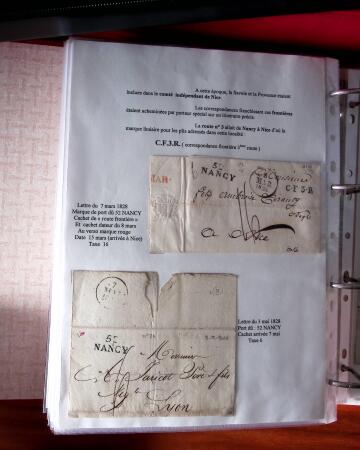 A cette époque, la Savoie et la Provence étaient
inclues dans le comité indépendant de Nice.
Les correspondances franchissant ces frontières
étaient acheminées par porteur spécial sur un itinéraire précis.
La route n° 3 allait de Nancy à Nice d'où la
marque linéaire pour les plis adressés dans cette localité :
C.F.3.R. ( correspondance frontière 3ème route )
Lettre du 7 mars 1828
Marque de port dû 52 NANCY
Cachet de « route frontière »
Et cachet dateur du 8 mars
Au verso marque rouge
Date 13 mars (arrivée à Nice)
Taxe 16
NANCY
C.F.3.R
a Nice
Lettre du 3 mai 1828
Port dû : 52 NANCY
Cachet arrivée 7 mai
Taxe 6
NANCY
Monsieur
Père & fils
Lyon